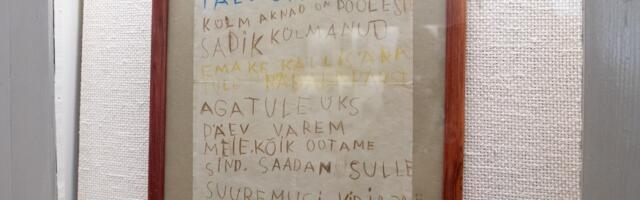 KOLM AKNAD ON POOLESI
SADIK KOLMANUD
EMAKE KALLIS ARA
TULE
AGATULE ÜKS
PÄEV VAREM
MEIE. KÕIK OOTAME
SIND. SAADAN SULLE
SUUREMUSI